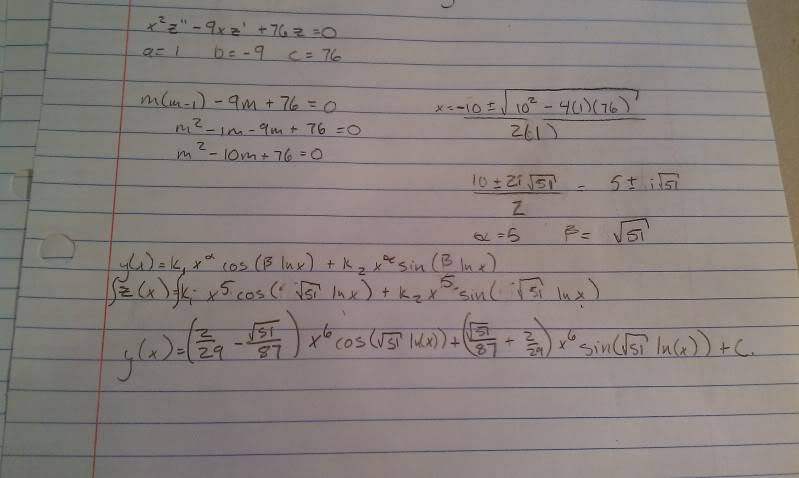 x²z'' - 9xz' + 76z = 0
a = 1 b = -9 c = 76
m(m-1) - 9m + 76 = 0
m² - 1m - 9m + 76 = 0
m² - 10m + 76 = 0
x = -10 ± √(10² - 4(1)(76)) / 2(1)
(10 ± 2i√51) / 2 = 5 ± i√51
α = 5 β = √51
y(x) = k₁ x^α cos(β ln x) + k₂ x^α sin(β ln x)
∫z(x) = ∫k₁ x⁵ cos(√51 ln x) + k₂ x⁵ sin(√51 ln x)
y(x) = (2/29 - √51/87) x⁶ cos(√51 ln(x)) + (√51/87 + 2/29) x⁶ sin(√51 ln(x)) + C.